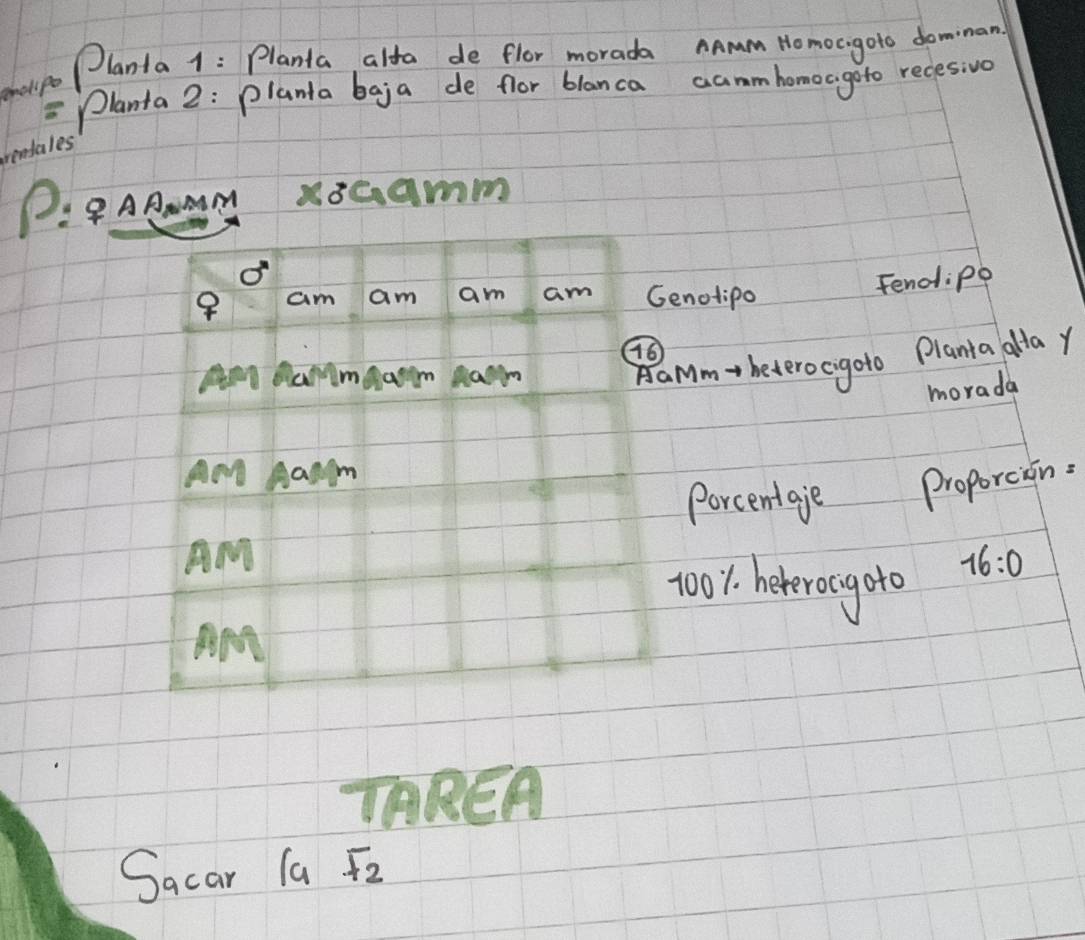 Planta 1: Planta alta de flor morada AAMM Homocigoto dominan.
= Planta 2: planta baja de flor blanca aamm homocigoto recesivo
P: ♀ AAMM x♂aamm
♀ ♂ am am am am Genotipo Fenotipo
AM AaMm AaMm AaMm 16 AaMm → heterocigoto Planta alta y
morada
AM AaMm Porcentaje Proporción=
AM 100% heterocigoto 16:0
AM
TAREA
Sacar la F2